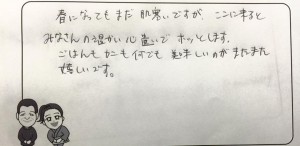 春になってもまだ肌寒いですが、ここに来ると
みなさんの温かい心遣いでホッとします。
ごはんもカニも何でも美味しいのがまたまた
嬉しいです。